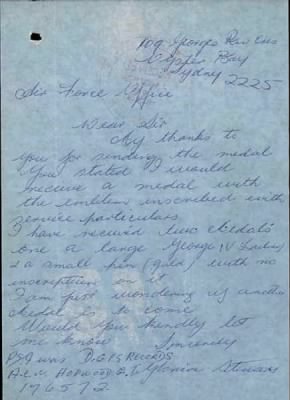 109 Georges Riv Cres
Oyster Bay
Sydney 2225
Air Force Office
Dear Sir
My thanks to
you for sending the medal
You stated I would
receive a medal with
the emblem inscribed with
service particulars.
I have received two Medals
one a large George IV
& a small pin (gold) with no
inscription on it
I am just wondering if another
Medal is to come
Would you kindly let
me know Sincerely
PSA was D.G.P.S RECORDS
A.C.W. HOPWOOD G.I. Stewart
176572.